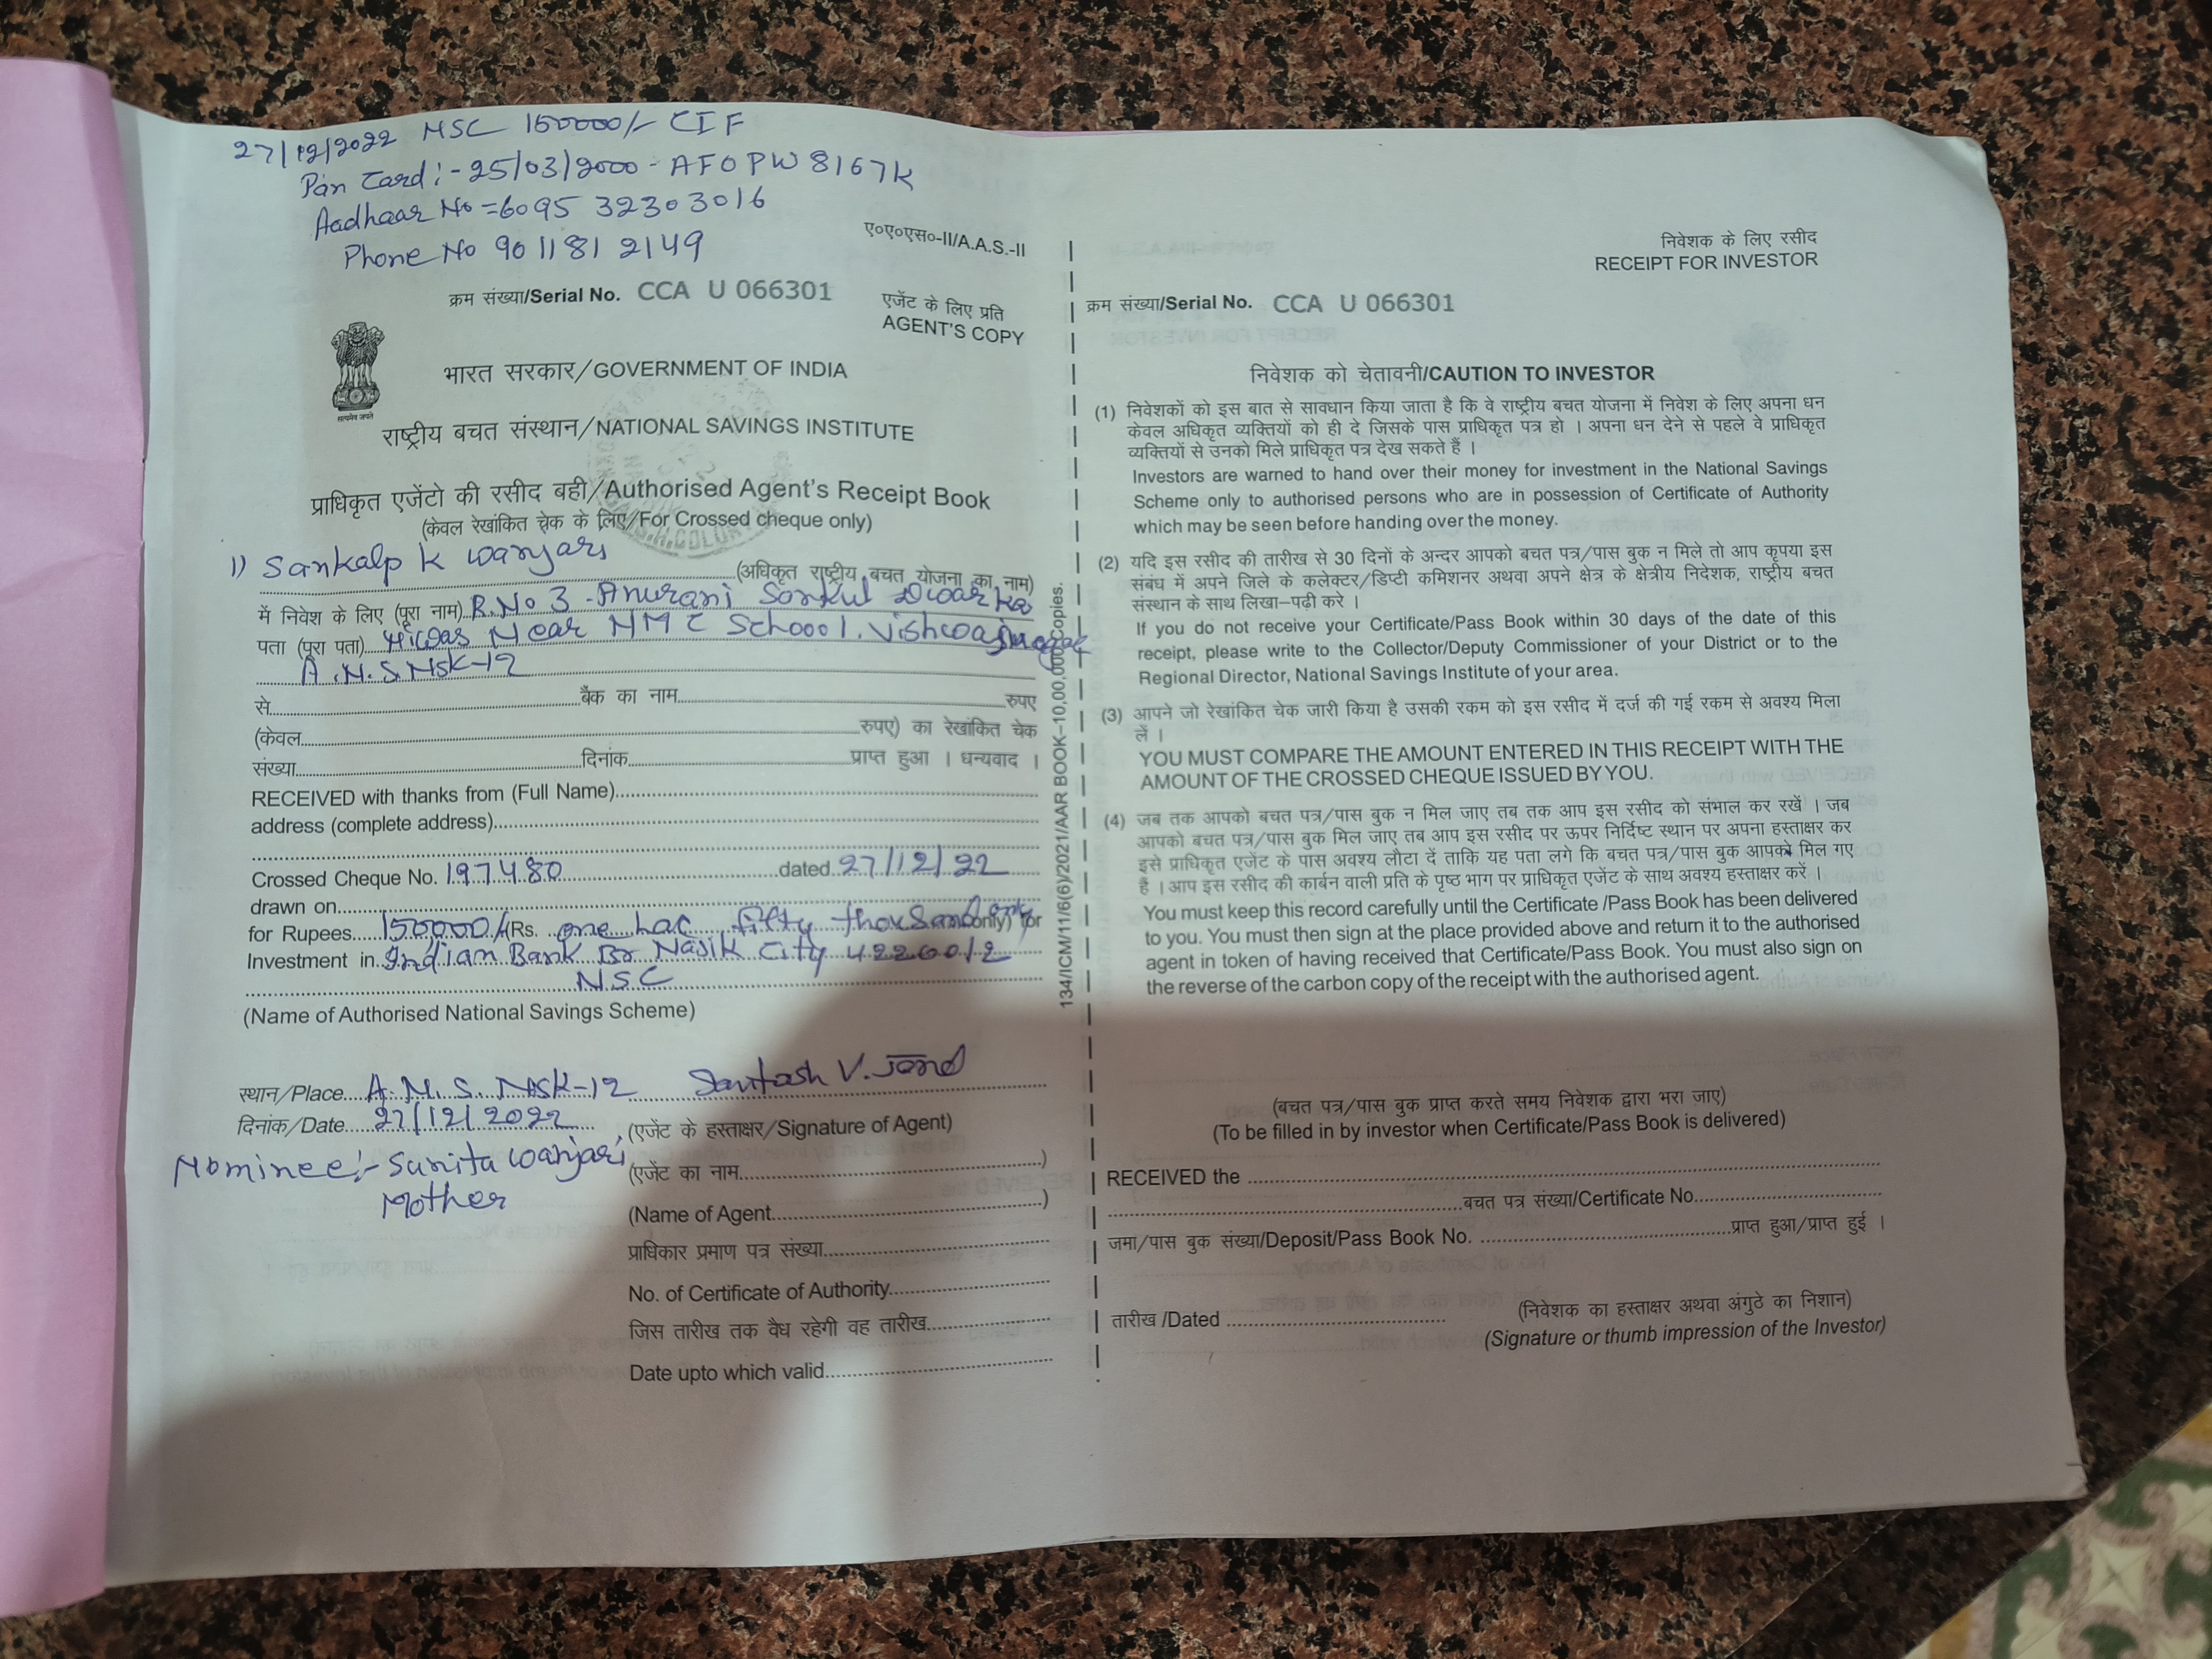 27/12/2022 NSC 150000/- CIF
Pan Card :- 25/03/2000 - AFOPW8167K
Aadhaar No = 6095 32303016
Phone No 9011812149
ए०ए०एस०-II/A.A.S.-II
क्रम संख्या/Serial No. CCA U 066301
एजेंट के लिए प्रति
AGENT'S COPY
सत्यमेव जयते
भारत सरकार/GOVERNMENT OF INDIA
राष्ट्रीय बचत संस्थान/NATIONAL SAVINGS INSTITUTE
प्राधिकृत एजेंटो की रसीद बही/Authorised Agent's Receipt Book
(केवल रेखांकित चेक के लिए/For Crossed cheque only)
1) Sankalp K Wanjari
(अधिकृत राष्ट्रीय बचत योजना का नाम)
में निवेश के लिए (पूरा नाम) R.No 3 - Anurani Sankul Dwarka
पता (पूरा पता) Near NMC School. Vishwasnagar
A.N.S. NSK-12
से बैंक का नाम रुपए
(केवल रुपए) का रेखांकित चेक
संख्या दिनांक प्राप्त हुआ । धन्यवाद ।
RECEIVED with thanks from (Full Name)
address (complete address)
Crossed Cheque No. 197480 dated 27/12/22
drawn on
for Rupees 150000/- (Rs. one lac fifty thousand only only) for
Investment in Indian Bank Br Nasik City 4226012
N.S.C
(Name of Authorised National Savings Scheme)
स्थान/Place A.N.S. NSK-12 Santosh V.
दिनांक/Date 27/12/2022 (एजेंट के हस्ताक्षर/Signature of Agent)
Nominee :- Sunita Wanjari (एजेंट का नाम )
Mother
(Name of Agent )
प्राधिकार प्रमाण पत्र संख्या
No. of Certificate of Authority
जिस तारीख तक वैध रहेगी वह तारीख
Date upto which valid
134/ICM/11/6(6)/2021/AAR BOOK–10,00,000 Copies.
निवेशक के लिए रसीद
RECEIPT FOR INVESTOR
क्रम संख्या/Serial No. CCA U 066301
निवेशक को चेतावनी/CAUTION TO INVESTOR
(1) निवेशकों को इस बात से सावधान किया जाता है कि वे राष्ट्रीय बचत योजना में निवेश के लिए अपना धन
केवल अधिकृत व्यक्तियों को ही दे जिसके पास प्राधिकृत पत्र हो । अपना धन देने से पहले वे प्राधिकृत
व्यक्तियों से उनको मिले प्राधिकृत पत्र देख सकते हैं ।
Investors are warned to hand over their money for investment in the National Savings
Scheme only to authorised persons who are in possession of Certificate of Authority
which may be seen before handing over the money.
(2) यदि इस रसीद की तारीख से 30 दिनों के अन्दर आपको बचत पत्र/पास बुक न मिले तो आप कृपया इस
संबंध में अपने जिले के कलेक्टर/डिप्टी कमिशनर अथवा अपने क्षेत्र के क्षेत्रीय निदेशक, राष्ट्रीय बचत
संस्थान के साथ लिखा–पढ़ी करे ।
If you do not receive your Certificate/Pass Book within 30 days of the date of this
receipt, please write to the Collector/Deputy Commissioner of your District or to the
Regional Director, National Savings Institute of your area.
(3) आपने जो रेखांकित चेक जारी किया है उसकी रकम को इस रसीद में दर्ज की गई रकम से अवश्य मिला
लें ।
YOU MUST COMPARE THE AMOUNT ENTERED IN THIS RECEIPT WITH THE
AMOUNT OF THE CROSSED CHEQUE ISSUED BY YOU.
(4) जब तक आपको बचत पत्र/पास बुक न मिल जाए तब तक आप इस रसीद को संभाल कर रखें । जब
आपको बचत पत्र/पास बुक मिल जाए तब आप इस रसीद पर ऊपर निर्दिष्ट स्थान पर अपना हस्ताक्षर कर
इसे प्राधिकृत एजेंट के पास अवश्य लौटा दें ताकि यह पता लगे कि बचत पत्र/पास बुक आपको मिल गए
हैं । आप इस रसीद की कार्बन वाली प्रति के पृष्ठ भाग पर प्राधिकृत एजेंट के साथ अवश्य हस्ताक्षर करें ।
You must keep this record carefully until the Certificate /Pass Book has been delivered
to you. You must then sign at the place provided above and return it to the authorised
agent in token of having received that Certificate/Pass Book. You must also sign on
the reverse of the carbon copy of the receipt with the authorised agent.
(बचत पत्र/पास बुक प्राप्त करते समय निवेशक द्वारा भरा जाए)
(To be filled in by investor when Certificate/Pass Book is delivered)
RECEIVED the
बचत पत्र संख्या/Certificate No.
जमा/पास बुक संख्या/Deposit/Pass Book No. प्राप्त हुआ/प्राप्त हुई ।
(निवेशक का हस्ताक्षर अथवा अंगुठे का निशान)
तारीख /Dated
(Signature or thumb impression of the Investor)